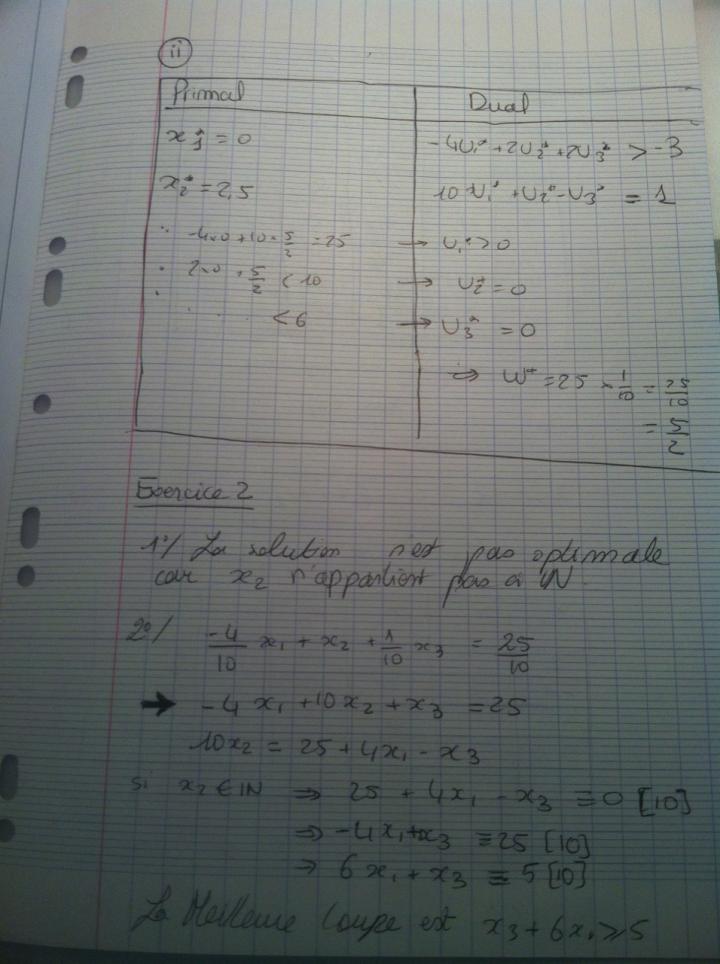 ii
Primal | Dual
x₁* = 0 | -4U₁* + 2U₂* + 2U₃* > -3
x₂* = 2,5 | 10 U₁* + U₂* - U₃* = 1
-4×0 + 10 × 5/2 = 25 → U₁* > 0
2×0 + 5/2 < 10 → U₂* = 0
. . . . < 6 → U₃* = 0
⇒ W* = 25 × 1/10 = 25/10
= 5/2
Exercice 2
1°/ La solution n'est pas optimale
car x₂ n'appartient pas à IN
2°/ -4/10 x₁ + x₂ + 1/10 x₃ = 25/10
➔ -4 x₁ + 10x₂ + x₃ = 25
10x₂ = 25 + 4x₁ - x₃
si x₂ ∈ IN ⇒ 25 + 4x₁ - x₃ ≡ 0 [10]
⇒ -4x₁ + x₃ ≡ 25 [10]
⇒ 6x₁ + x₃ ≡ 5 [10]
La Meilleure coupe est x₃ + 6x₁ ≥ 5